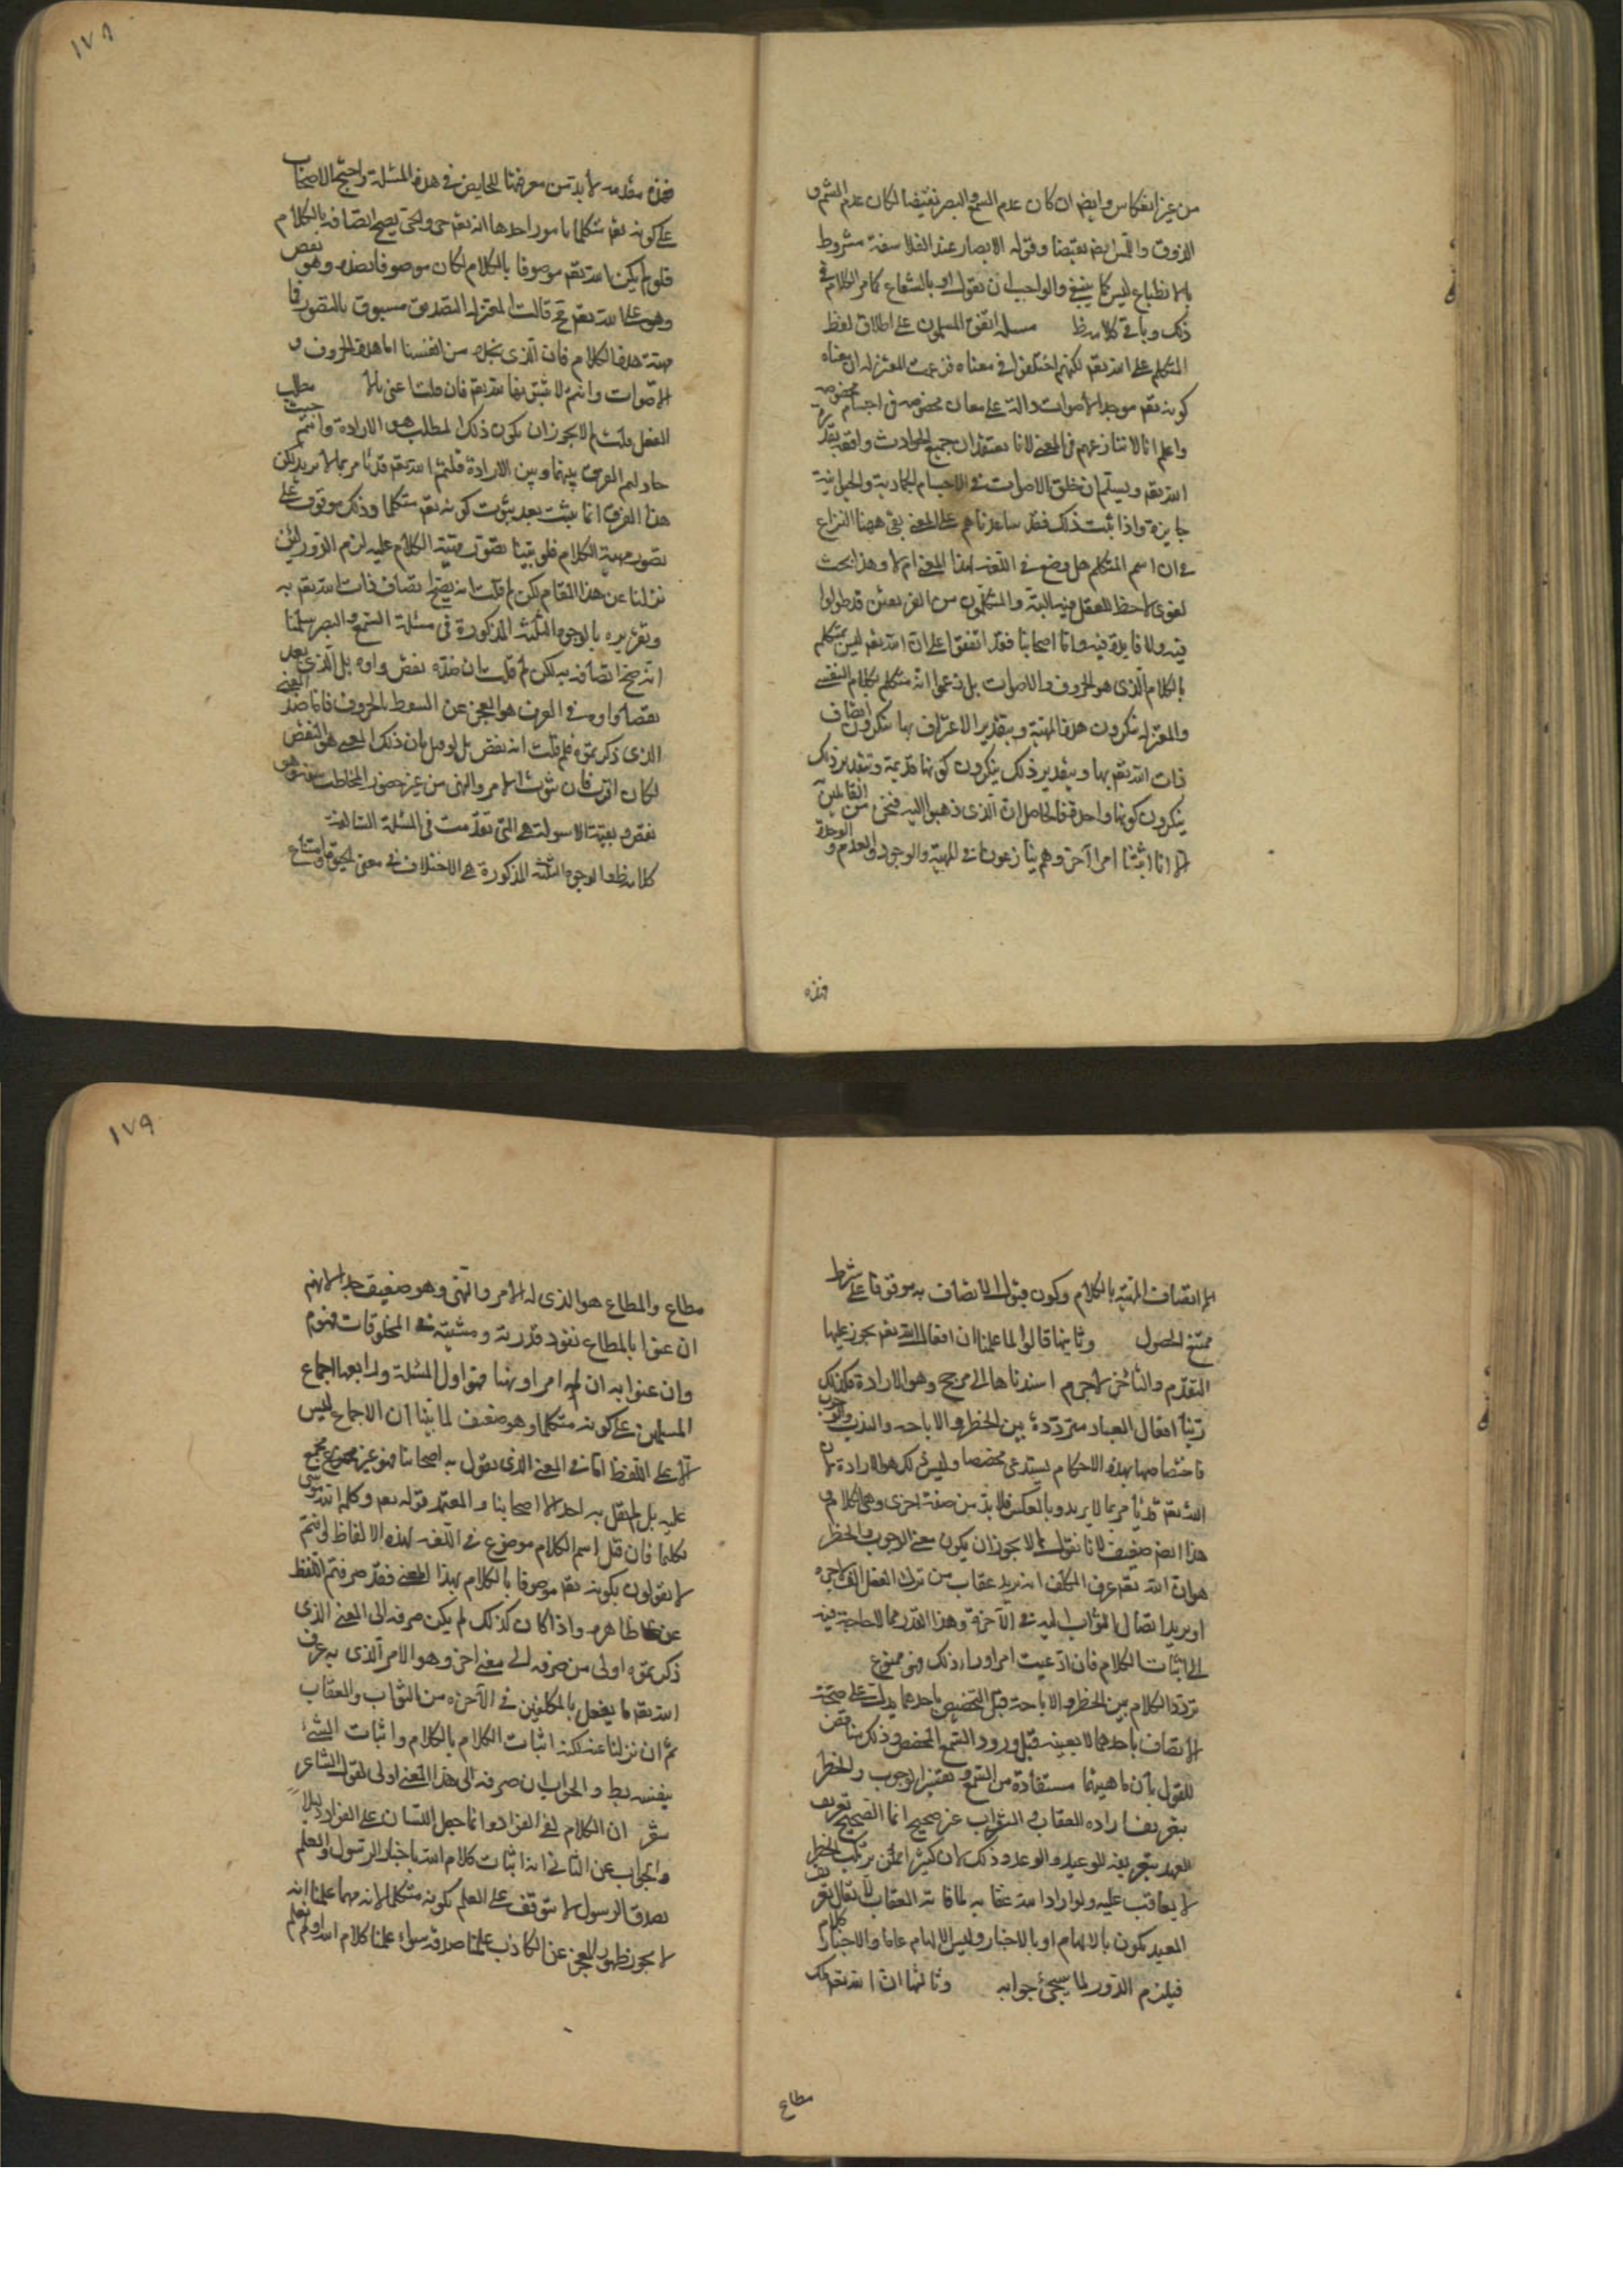 من غير انعكاس وايضا ان كان عدم السمع والبصر نقيضا لكان عدم الشم و
الذوق واللمس ايضا نقيضا وقوله الابصار عند الفلاسفة مشروط
بالانطباع ليس كما ينبغي والواجب ان يقول او بالشعاع كما مر الكلام في
ذلك وباقى كلامه ظ مسلة اتفق المسلمون على اطلاق لفظ
المتكلم على الله تعم لكنهم اختلفوا في معناه فزعمت المعتزلة ان معناه
كونه تعم موجدا لاصوات دالة على معان مخصوصة في اجسام مخصوصة
واعلم انا لا ننازعهم في المعنى لانا نعتقد ان جميع الحوادث واقعة بقدرة
الله تعم ويسلم ان خلق الاصوات في الاجسام الجمادية والحيوانية
جايزة واذا ثبت ذلك فقد ساعدناهم على المعنى بقى ههنا النزاع
في ان اسم المتكلم هل وضع في اللغة لهذا المعنى ام لا وهذا بحث
لغوى لا حظ للعقل فيه البتة والمتكلمون من الفريقين قد طولوا
فيه ولا فايدة فيه واما اصحابنا فقد اتفقوا على ان الله تعم ليس بمتكلم
بالكلام الذى هو الحروف والاصوات بل زعموا انه متكلم بكلام النفس
والمعتزلة ينكرون هذه المهية وبتقدير الاعتراف بها ينكرون اتصاف
ذات الله تعم بها وبتقدير ذلك ينكرون كونها قديمة وبتقدير ذلك
ينكرون كونها واحدة فالحاصل ان الذى ذهبوا اليه فنحن من القائلين
الا انا اثبتنا امرا آخر وهم ينازعوننا في المهية والوجود والقدم و الوحدة
فهذه
١٧٨
فهذه مقدمه لابد من معرفتها للخايض في هذه المسئلة واحتج الاصحاب
على كونه تعم متكلما بامور احدها انه تعم حى والحى يصح اتصافه بالكلام
فلو لم يكن الله تعم موصوفا بالكلام لكان موصوفا بضده وهو نقص
وهو على الله تعم مح قالت المعتزلة التصديق مسبوق بالتصور فما
مهية هذا الكلام فان الذى نجده من انفسنا اما هذه الحروف و
الاصوات وانتم لا تثبتونها لله تعم فان قلت اعنى بالامر طلب
الفعل قلت لم لا يجوز ان يكون ذلك المطلب هو الارادة وانتم حيث
حاولتم الفرق بينها وبين الارادة قلتم الله تعم قد يأمر بما لا يريد لكن
هذا الفرق انما يثبت بعد ثبوت كونه تعم متكلما وذلك موقوف على
تصور مهية الكلام فلو بنينا تصور مهية الكلام عليه لزم الدور لئن
نزلنا عن هذا المقام لكن لم قلت انه يصح اتصاف ذات الله تعم به
وتقريره بالوجوه الثلثة المذكورة في مسئلة السمع والبصر سلمنا
انه صح اتصافه به لكن لم قلت بان ضده نقص وآفة بل الذى يعد
نقصا وآفة في العرف هو العجز عن التلفظ بالحروف فاما ضد المعنى
الذى ذكرتموه فلم قلت انه نقص بل لو قيل بان ذلك المعنى هو النقص
لكان اقرب فان ثبوت الامر والنهى من غير حضور المخاطب سفه وهو
نقص وبقية الاسولة هى التى تقدمت في المسئلة السالفة
كلامه ظ والوجوه الثلثة المذكورة هى الاختلاف في معنى الحيوة وامتناع
الاتصاف المهية بالكلام وكون قبول الاتصاف به موقوفا على شرط
ممتنع الحصول وثانيها قالوا لما علمنا ان افعال الله تعم يجوز عليها
التقدم والتأخر لا جرم اسندناها الى مرجح وهو الارادة فكذلك
رأينا افعال العباد مترددة بين الحظر والاباحة والندب والوجوب
فاختصاصها بهذه الاحكام يستدعى مخصصا وليس ذلك هو الارادة لان
الله تعم قد يأمر بما لا يريد وبالعكس فلابد من صفة اخرى وهى الكلام و
هذا ايضا ضعيف لانا نقول لم لا يجوز ان يكون معنى الوجوب والحظر
هو ان الله تعم عرف المكلف انه يريد عقاب من ترك الفعل الفلانى
او يريد ايصال الثواب اليه في الآخرة وهذا القدر مما لا حاجة فيه
الى اثبات الكلام فان ادعيت امرا وراء ذلك فهو ممنوع
تردد الكلام بين الحظر والاباحة قبل التخصيص باحدهما يدل على صحة
الاتصاف باحدهما لا بعينه قبل ورود السمع المخصص وذلك يناقض
للقول بان ماهيتها مستفادة من السمع وتفسير الوجوب والحظر
بتعريف ارادة العقاب و الثواب غير صحيح انما الصحيح تعريف
العبيد بتعريف الوعيد والوعد وذلك لان كثيرا ممن يرتكب الحظر
لا يعاقب عليه ولو اراد الله عقابه لما فاته العقاب لا يقال تعريف
العبيد يكون بالالهام او بالاخبار وليس الالهام عاما والاخبار كلام
فيلزم الدور لما سيجئ جوابه وثالثها ان الله تعم ملك
مطاع
١٧٩
مطاع والمطاع هو الذى له الامر والنهى وهو ضعيف جدا لانهم
ان عنوا بالمطاع نفوذ قدرته ومشيته في المخلوقات فهو م
وان عنوا به ان له امرا ونهيا فهو اول المسئلة ورابعها اجماع
المسلمين على كونه متكلما وهو ضعيف لما بينا ان الاجماع ليس
الا على اللفظ اما في المعنى الذى يقول به اصحابنا فهو غير مجمع
عليه بل لم يقل به احد الا اصحابنا والمعتمد قوله تعم وكلم الله موسى
تكليما فان قيل اسم الكلام موضوع في اللغة لهذه الالفاظ وانتم
لا تقولون بكونه تعم موصوفا بالكلام بهذا المعنى فقد صرفتم اللفظ
عن ظاهره واذا كان كذلك لم يكن صرفه الى المعنى الذى
ذكرتموه اولى من صرفه الى معنى اخر وهو الامر الذى به عرف
الله تعم ما يفعل بالمكلفين في الآخرة من الثواب والعقاب
ثم ان نزلنا عنه لكنه اثبات الكلام بالكلام واثبات الشئ
بنفسه بط والجواب ان صرفه الى هذا المعنى اولى لقول الشاعر
شعر ان الكلام لفى الفؤاد وانما جعل اللسان على الفؤاد دليلا
والجواب عن الثانى انه اثبات كلام الله باخبار الرسول والعلم
بصدق الرسول لا يتوقف على العلم بكونه متكلما لانه مهما علمنا انه
لا يجوز ظهور المعجز عن الكاذب علمنا صدقه سواء علمنا كلام الله او لم نعلم